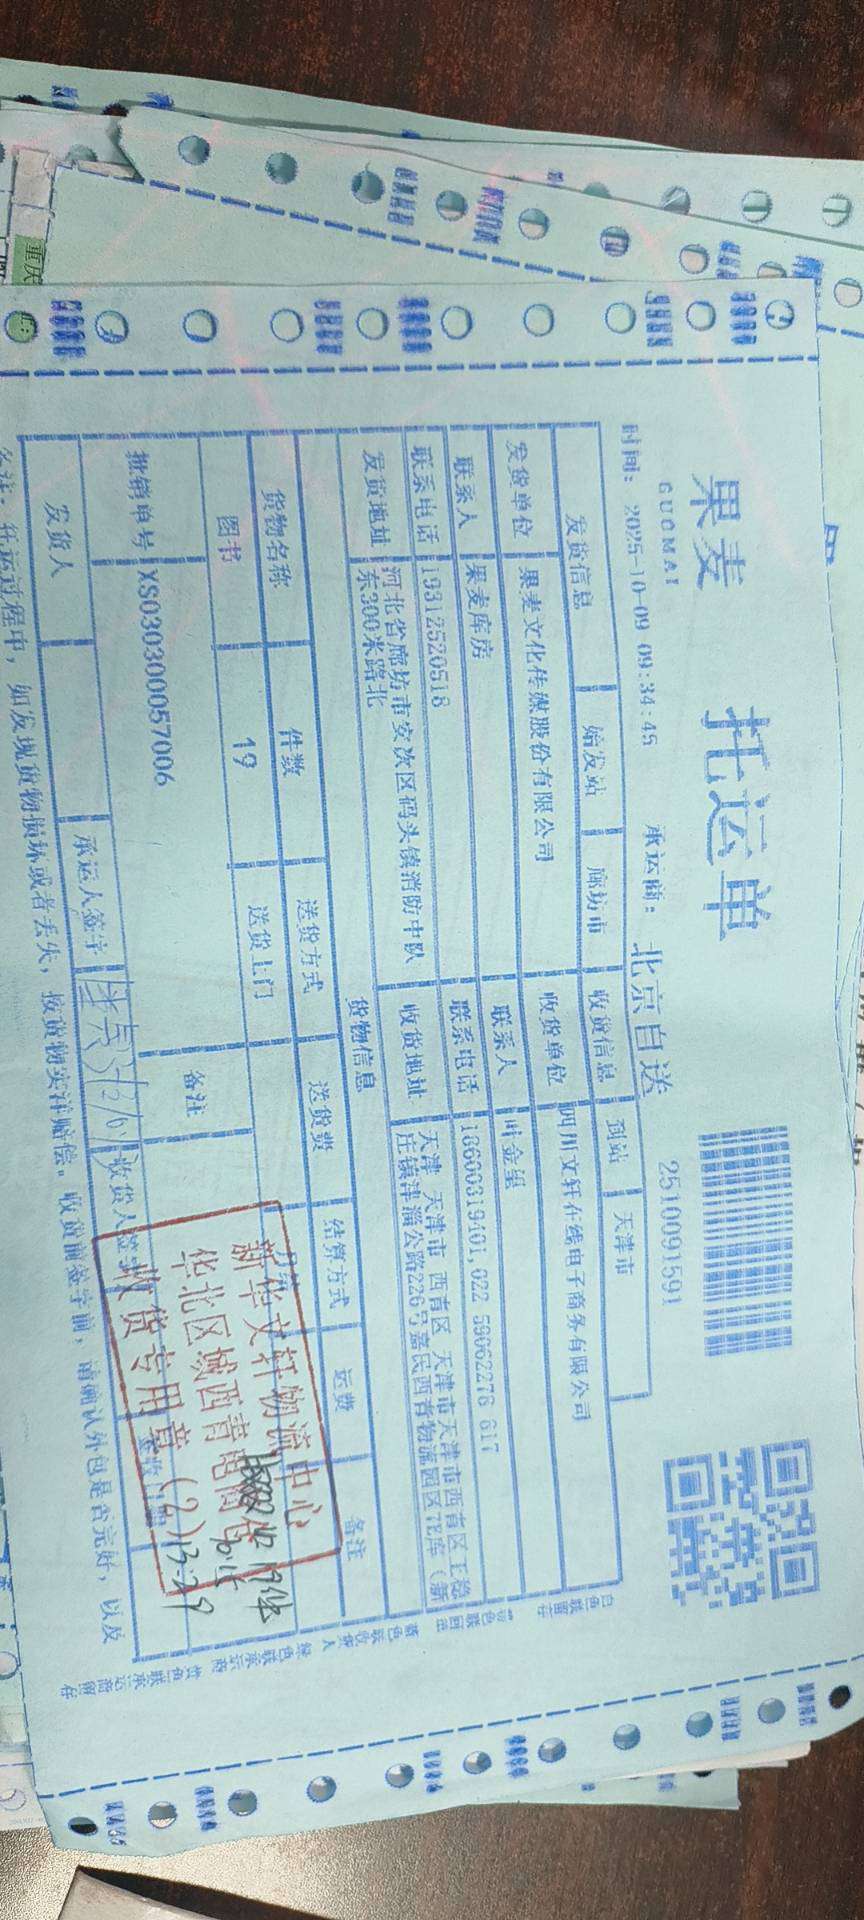 果麦
GUOMAI
托运单
2510091591
时间: 2025-10-09 09:34:45
承运商: 北京自送
发货信息 始发站 廊坊市 收货信息 到站 天津市
发货单位 果麦文化传媒股份有限公司 收货单位 四川文轩在线电子商务有限公司
联系人 果麦库房 联系人 叶金玺
联系电话 19312520518 联系电话 18600319401,022 59062276 617
发货地址 河北省廊坊市安次区码头镇消防中队
东300米路北
收货地址 天津 天津市 西青区 天津市天津市西青区王稳
庄镇津淄公路226号嘉民西青物流园区7E库(新
货物信息
货物名称 件数 送货方式 送货费 结算方式 运费 备注
图书 19 送货上门
批销单号 XS030300057006 备注
发货人 承运人签字 收货人签字
新华文轩物流中心
华北区域西青电商仓
收货专用章(2)
19件
13:29
备注: 托运过程中, 如发现货物损坏或者丢失, 按货物实洋赔偿。收货前签字前, 请确认外包是否完好, 以及
白色联留存
蓝色联收货人
绿色联承运商
黄色联承运商留存
重庆